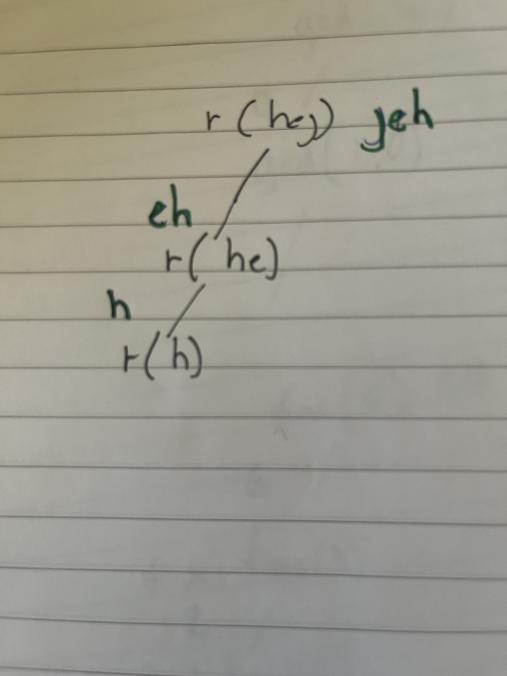 r(hej) jeh
eh
r(he)
h
r(h)